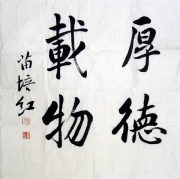 厚德
載物
苗培红